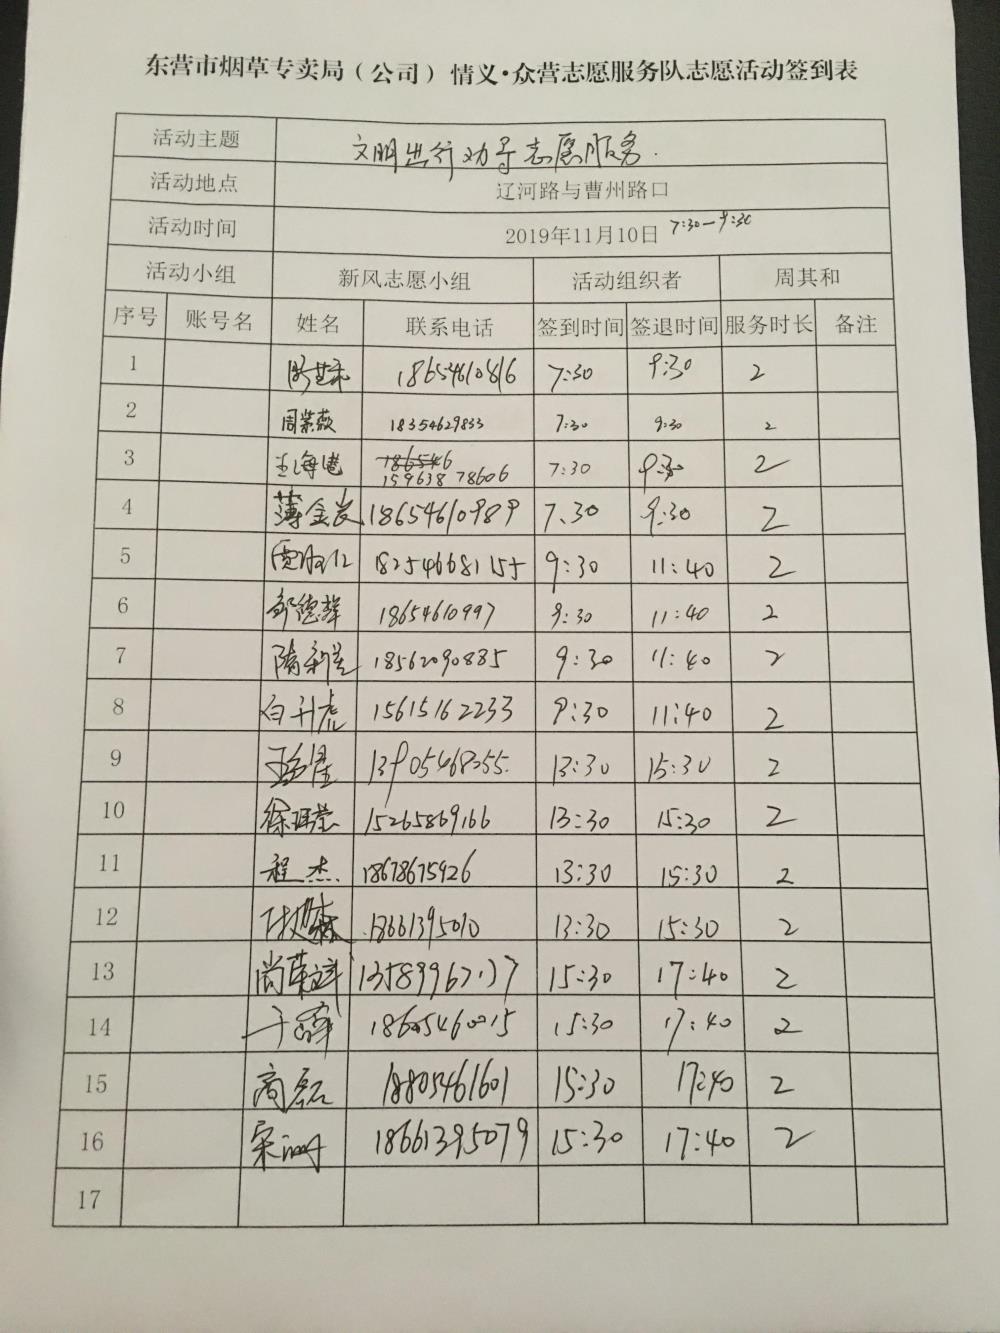 东营市烟草专卖局（公司）情义·众营志愿服务队志愿活动签到表
活动主题 文明出行劝导志愿服务.
活动地点 辽河路与曹州路口
活动时间 2019年11月10日 7:30—9:30
活动小组 新风志愿小组 活动组织者 周其和
序号 账号名 姓名 联系电话 签到时间 签退时间 服务时长 备注
1 18654610816 7:30 9:30 2
2 周紫薇 18354629833 7:30 9:30 2
3 王海港 15963878606 7:30 9:30 2
4 薄金岩 18654610989 7:30 9:30 2
5 18254668155 9:30 11:40 2
6 邹德辉 18654610997 9:30 11:40 2
7 隋新兰 18562090885 9:30 11:40 2
8 白升虎 15615162233 9:30 11:40 2
9 13905468255. 13:30 15:30 2
10 徐珥莹 15265869166 13:30 15:30 2
11 程杰 18678675926 13:30 15:30 2
12 18661395010 13:30 15:30 2
13 尚荣斌 15:30 17:40 2
14 15:30 17:40 2
15 高磊 18805461601 15:30 17:40 2
16 18661395079 15:30 17:40 2
17